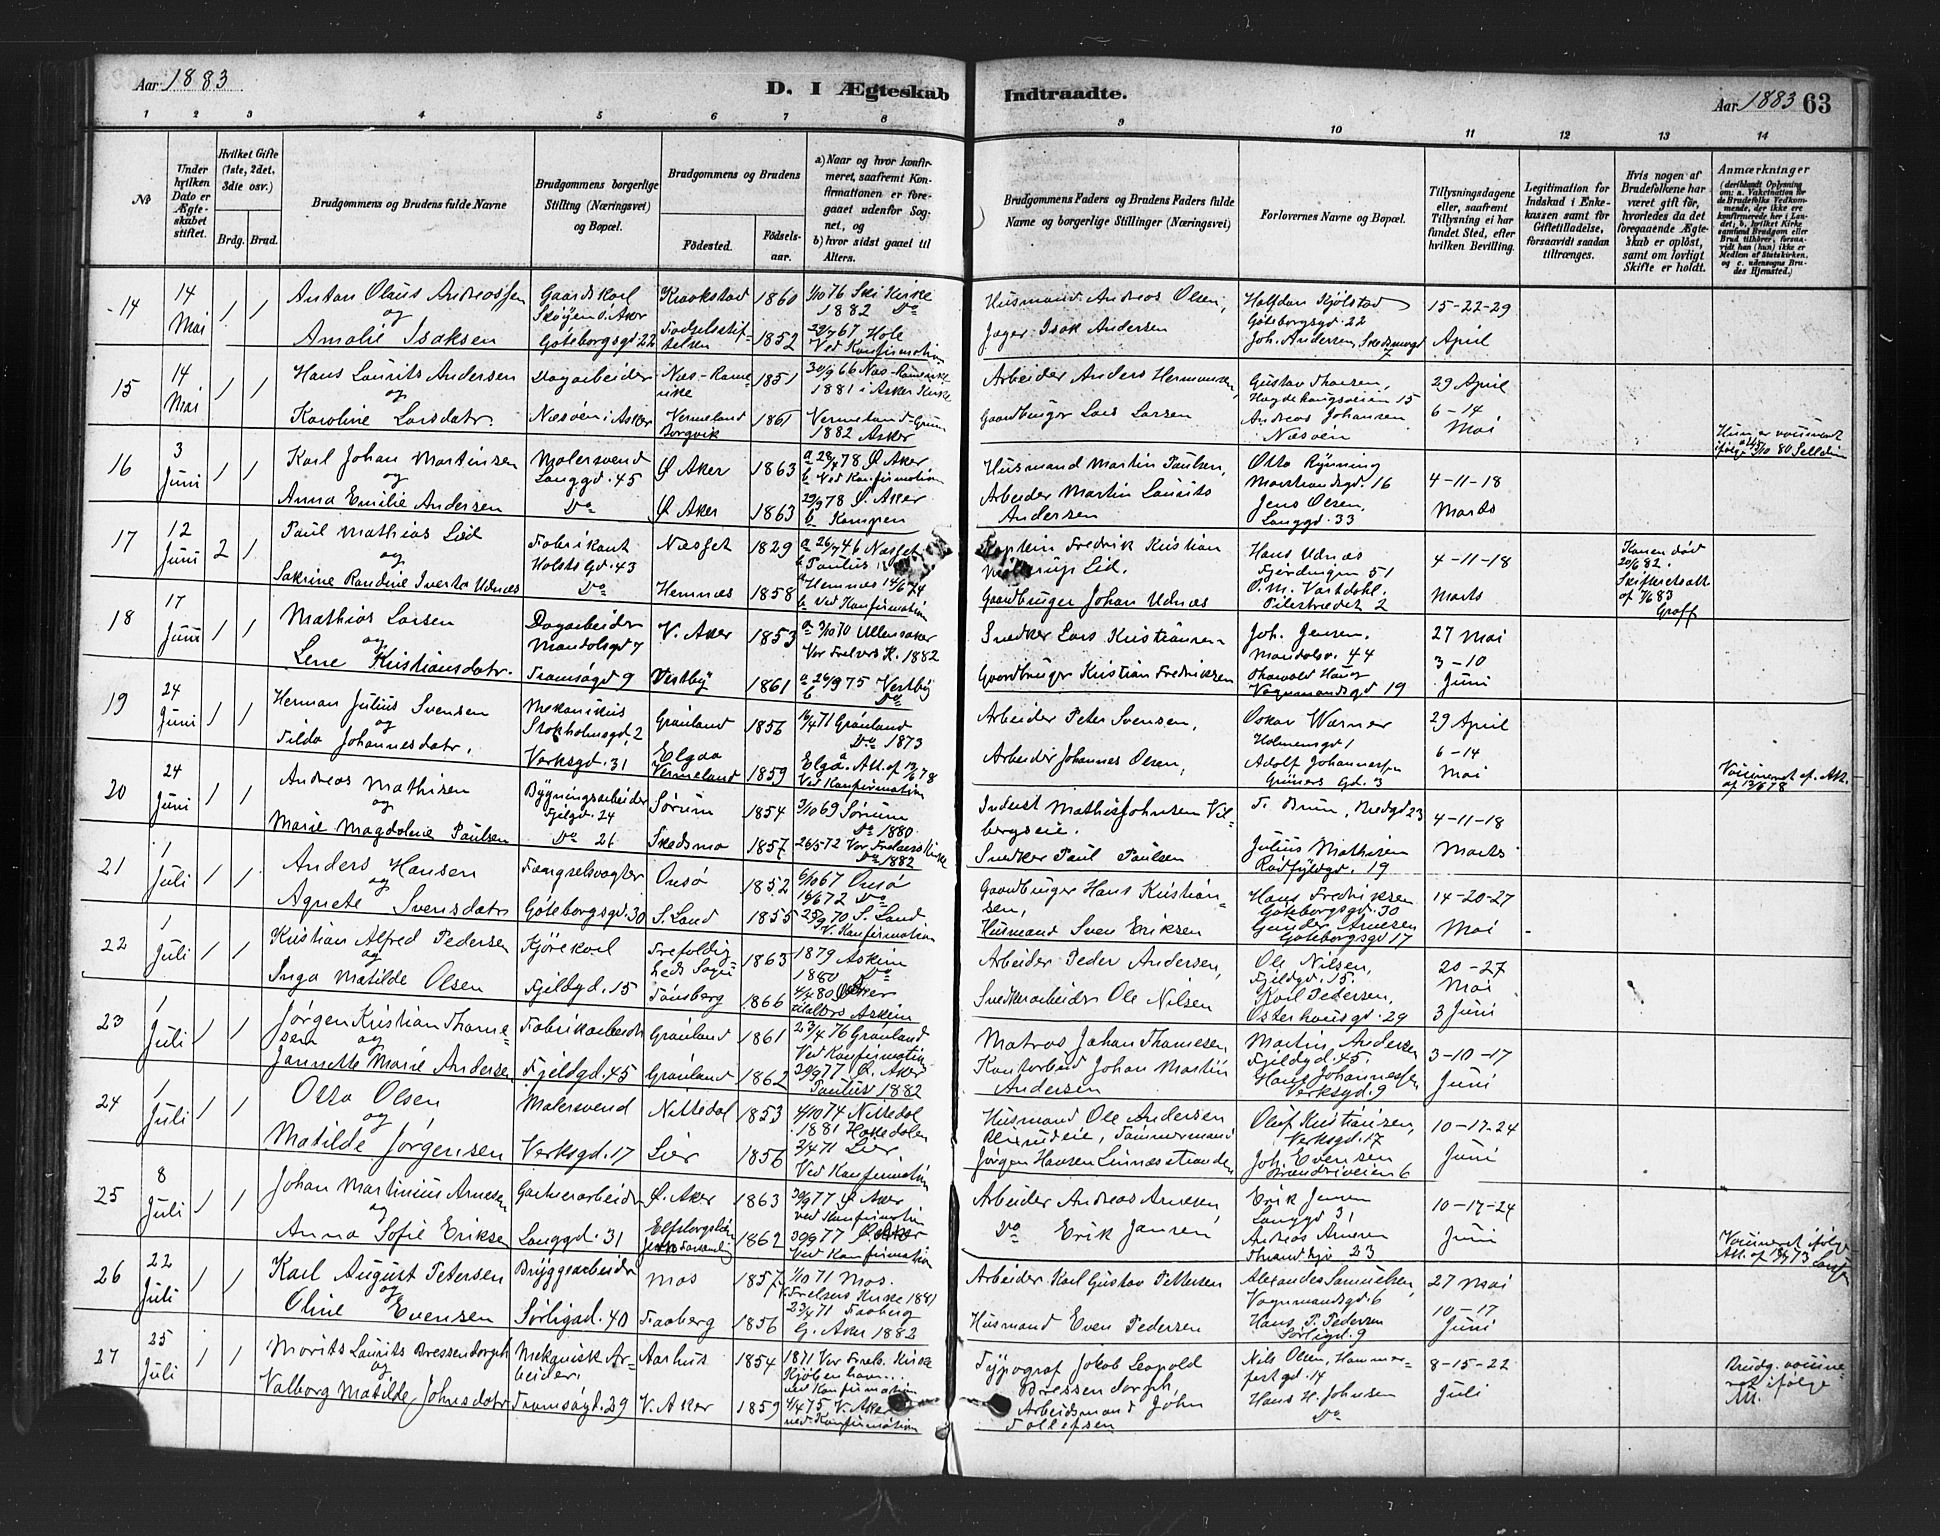 Aar 1883
D. I Ægteskab
Indtraadte.
Aar 1883 63
1 2 3 4 5 6 7 8 9 10 11 12 13 14
No
Under hvilken Dato er Ægteskabet stiftet.
Hvilket Gifte (1ste, 2det, 3die osv.)
Brdg. Brud.
Brudgommens og Brudens fulde Navne
Brudgommens borgerlige Stilling (Næringsvei) og Bopæl.
Brudgommens og Brudens
Fødested.
Fødselsaar.
a) Naar og hvor konfirmeret, saafremt Konfirmationen er foregaaet udenfor Sognet, og
b) hvor sidst gaaet til Alters.
Brudgommens Faders og Brudens Faders fulde Navne og borgerlige Stillinger (Næringsvei)
Forlovernes Navne og Bopæl.
Tillysningsdagene eller, saafremt Tillysning ei har fundet Sted, efter hvilken Bevilling.
Legitimation for Indskud i Enkekassen samt for Giftetilladelse, forsaavidt saadan tiltrænges.
Hvis nogen af Brudefolkene har været gift før, hvorledes da det foregaaende Ægteskab er opløst, samt om lovligt Skifte er holdt.
Anmærkninger
(deriblandt Oplysning om: a. Vaksination for de Brudefolks Vedkommende, der ikke ere konfirmerede her i Landet; b. hvilket Kirkesamfund Brudgom eller Brud tilhører, forsaavidt han (hun) ikke er Medlem af Statskirken, og c. udensogns Brudes Hjemsted.)
14
14 Mai
1 1
Anton Olaus Andreassen
og
Amalie Isaksen
Gaardskarl
Skøyen V. Aker
Göteborgsgd 22
Kraakstad 1860
Fødselsstiftelsen 1852
1/10 76 Ski Kirke
1882 Do
29/9 67 Hole
Ved Konfirmation
Husmand Andreas Olsen,
Jæger Isak Andersen
Halfdan Kjølstad
Göteborgsgd. 22
Joh. Andersen, Skedsmogd 7
15-22-29
April
15
14 Mai
1 1
Hans Laurits Andersen
og
Karoline Larsdatr.
Dagarbeider
Næsøen i Asker
Næs-Romerike 1851
Vermeland Borgvik 1861
30/9 66 Næs-Romerike
1881 i Asker Kirke
Vermeland-Grum
1882 Asker
Arbeider Anders Hermansen,
Gaardbruger Lars Larsen
Gustav Thorsen,
Hægdehaugsveien 15
Andreas Johansen
Næsøen
29 April
6-14
Mai
16
3 Juni
1 1
Karl Johan Martinsen
og
Anna Emilie Andersen
Malersvend
Langgd. 45
Do
Ø Aker 1863
Ø Aker 1863
a 28/4 78 Ø Aker
b Ved Konfirmation
29/9 78 Ø. Aker
b Kampen
Husmand Martin Paulsen,
Arbeider Martin Laurits
Andersen
Otto Rynning
Marstrandsgd. 16
Jens Olsen,
Langgd. 33
4-11-18
Marts
17
12 Juni
2 1
Paul Mathias Lid
og
Sakrine Randine Iverta Udnæs
Fabrikant
Holsts Gd. 43
Do
Næsset 1829
Hemnæs 1858
a 26/7 46 Næsset
b Paulus
a Hemnes 14/6 74
b Ved Konfirmation
Kaptein Fredrik Kristian
Lid.
Gaardbruger Johan Udnæs
Hans Udnæs
Fjerdingen 51
O. M. Vartdahl,
Pilestrædet 2
4-11-18
Marts
Konen død
20/6 82.
Skifteretsatt.
af 7/6 83
Graff
18
17 Juni
1 1
Mathias Larsen
og
Lene Kristiansdatr.
Dagarbeider
Mandalsgd 7
Tromsøgd 9
V. Aker 1853
Vestby 1861
a 9/10 70 Ullensaker
Vor Frelsers K. 1882
a 26/9 75 Vestby
b Do
Snedker Lars Kristiansen
Gaardbruger Kristian Fredriksen
Joh. Jensen,
Mandalsv. 44
Thorvald Haug
Vognmandsgd 19
27 Mai
3-10
Juni
19
24 Juni
1 1
Herman Julius Svensen
og
Tilda Johannesdatr,
Mekanikus
Stokholmsgd, 2
Verksgd. 31
Grønland 1856
Elgaa Vermeland 1859
16/4 71 Grønland
Do 1873
Elgå. Att. af 13/6 78
Ved Konfirmation
Arbeider Peter Svensen,
Arbeider Johannes Olsen,
Oskar Warner
Holmensgd 1
Adolf Johannessen
Grüners Gd. 3
29 April
6-14
Mai
20
24 Juni
1 1
Andreas Mathisen
og
Marie Magdalene Paulsen
Bygningsarbeider
Fjelgd. 24
Do 26
Sørum 1854
Skedsmo 1857
3/10 69 Sørum
Do 1880
26/5 72 Vor Frelsers Kirke
Do 1882
Inderst Mathis Johnsen Vilbergseie.
Snedker Paul Paulsen
F. Brun, Bredgd 23
Julius Mathisen
Rødfyldgd. 19
4-11-18
Marts
Vaccineret if. Att.
af 13/6 78
21
1 Juli
1 1
Anders Hansen
og
Agnete Svensdatr
Fængselsvagter
Göteborgsgd. 30
Onsø 1852
S. Land 1855
6/10 67 Onsø
19/6 72 Do
25/9 70 S. Land
V. Konfirmation
Gaardbruger Hans Kristiansen,
Husmand Sven Eriksen
Hans Fredriksen
Göteborgsgd. 30
Gunder Arnesen
Göteborgsgd 17
14-20-27
Mai
22
1 Juli
1 1
Kristian Alfred Pedersen
og
Inga Matilde Olsen
Kjørekarl
Fjeldgd. 15
Trefoldigheds Sogn 1863
Tønsberg 1866
1879 Askim
1880 Do
4/4 80 Ø Aker
altalters Askim
Arbeider Peder Andersen,
Snedkerarbeider Ole Nilsen
Ole Nilsen,
Fjeldgd. 15.
Karl Pedersen,
Osterhausgd. 29
20-27
Mai
3 Juni
23
1 Juli
1 1
Jørgen Kristian Thomesen
og
Jannette Marie Andersen
Fabrikarbeider
Fjeldgd. 45
Grønland 1861
Grønland 1862
23/4 76 Grønland
Ved Konfirmation
30/9 77 Ø. Aker
Paulus 1882
Matros Johan Thomesen,
Kontorbud Johan Martin
Andersen
Martin Andersen
Fjeldgd. 45.
Hans Johannessen
Verksgd. 9
3-10-17
Juni
24
1 Juli
1 1
Otto Olsen
og
Matilde Jørgensen
Malersvend
Verksgd. 17
Nittedal 1853
Lier 1856
4/10 74 Nittedal
1881 Hakedalen
2/4 71 Lier
Ved Konfirmation
Husmand Ole Andersen
Tømmermand
Jørgen Hansen Linnæsstranden
Olaf Kristiansen,
Verksgd. 17
Joh. Evensen
Brændriveien 6
10-17-24
Juni
25
8 Juli
1 1
Johan Martinius Arnesen
og
Anna Sofie Eriksen
Gartnerarbeider
Langgd. 31
Ø. Aker 1863
Elfsborgslän 1862
30/9 77 Ø Aker
ved Konfirmation
30/9 77 Ø. Aker
Ved Konfirmation
Arbeider Andreas Arnesen,
Do Erik Jansen,
Erik Jansen
Langgd 31
Andreas Arnesen
23
10-17-24
Juni
Vaccineret ifølge
Att. af 73
26
22 Juli
1 1
Karl August Petersen
og
Oline Evensen
Bryggearbeider
Sørligad. 40
Mos 1857
Faaberg 1856
1/10 71 Mos.
V. Frelsers Kirke 1881
23/4 71 Faaberg
G. Aker 1882
Arbeider Karl Gustav Pettersen
Husmand Even Pedersen
Alexander Samuelsen,
Vognmandsgd. 6
Hans P. Pedersen
Sørligd. 9
27 Mai
10-17
Juni
27
25 Juli
1 1
Morits Laurits Bressendorph
og
Valborg Matilde Johnsdatr
Mekanisk Arbeider,
Tromsøgd. 29
Aarhus 1854
V. Aker 1859
1871 Vor Frels. Kirke
Kjøbenhavn..
ved Konfirmation
4/4 75 V. Aker
ved Konfirmation
Typograf Jakob Leopold
Bressendorph,
Arbeidsmand John
Tollefsen
Nils Olsen, Hammerfestgd. 14
Hans H. Johnsen
Do
8-15-22
Juli
Brudg. vaccineret ifølge
Att.